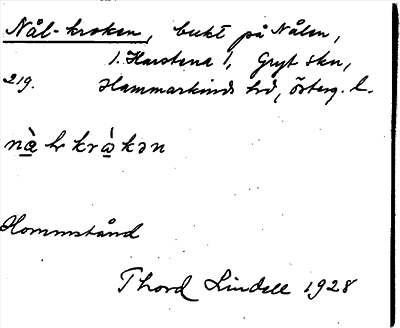 Nål-kroken, bukt på Nålen,
1. Harstena 1, Gryt skn,
219. Hammarkinds hd, Österg. l.
Hommstånd
Thord Lindell 1928